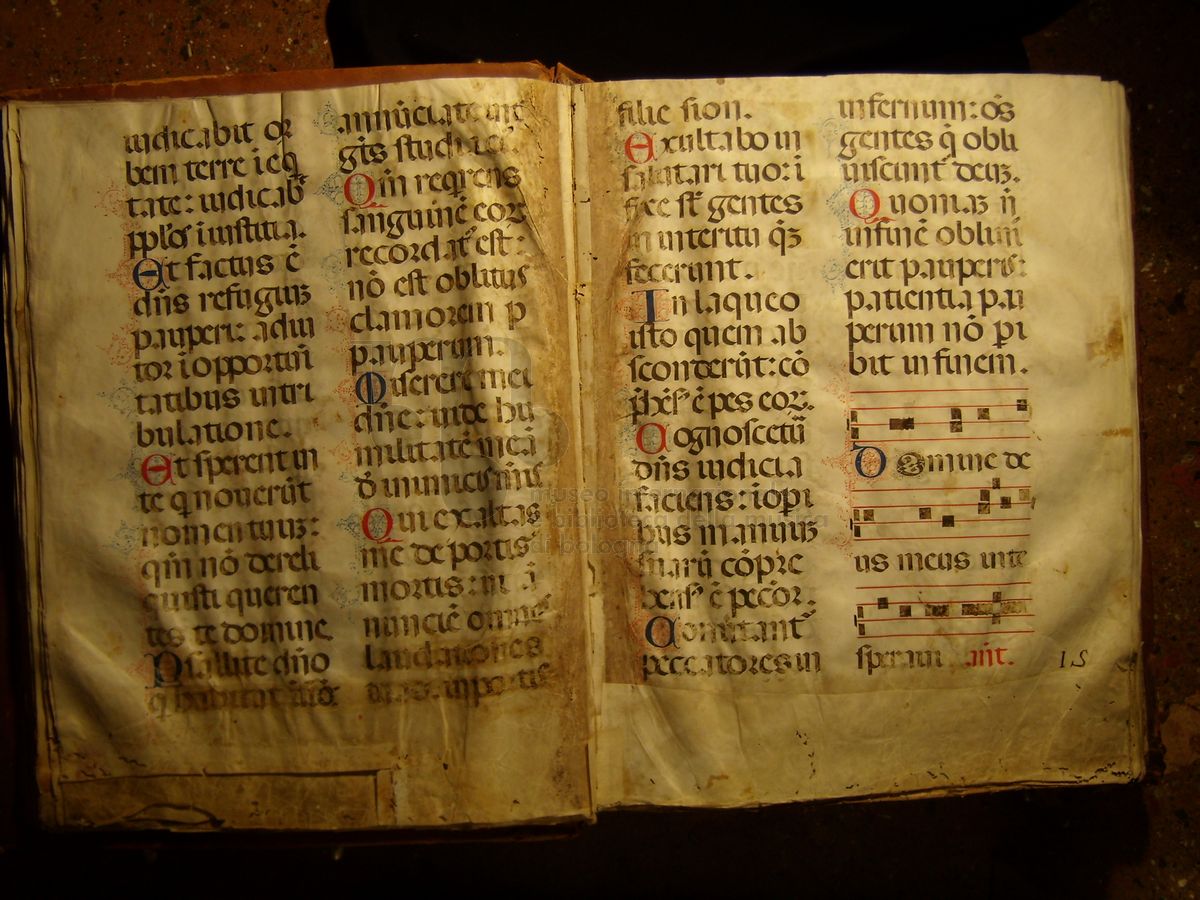 iudicabit or
bem terre i eq̄
tate: iudicab̄
pplōs ī iustitia.
Et factus ē
dn̄s refugiuz
pauperi: adiu
tor ī opportun̄i
tatibus in tri
bulatione.
Et sperent in
te q̄ noverūt
nomen tuuz:
qm̄ nō dereli
quisti queren
tes te domine
Psallite dn̄o
q̄ habitat
annūciate int̄
gn̄tes studia ei.
Qm̄ requirens
sanguinē eor
recordat̄ est:
nō est oblitus
clamorem p
pauperum.
Miserere mei
dn̄e: uide hu
militatē meā
d̄ inimicis meis
Qui exaltas
me de portis
mortis: ut ā
nunciē omnes
laudationes
tuas in portis
filie sion.
Exultabo in
salutari tuo: ī
fixe st̄ gentes
in interitu q̄z
fecerunt.
In laqueo
isto quem ab
sconderūt: cō
p̄hēs̄ ē pes eor.
Cognoscetū
dn̄s iudicia
faciens: ī opi
bus manuuz
suarū cōpre
hens̄ ē peccōr.
Convertant̄
peccatores in
infernum: oēs
gentes q̄ obli
uiscunt̄ deuz.
Quoniaz n̄
in finē obliui
erit pauperis:
patientia pau
perum nō pi
bit in finem.
Domine de
us meus in te
speraui ant̄.
15
museo
biblioteca della musica
di bologna